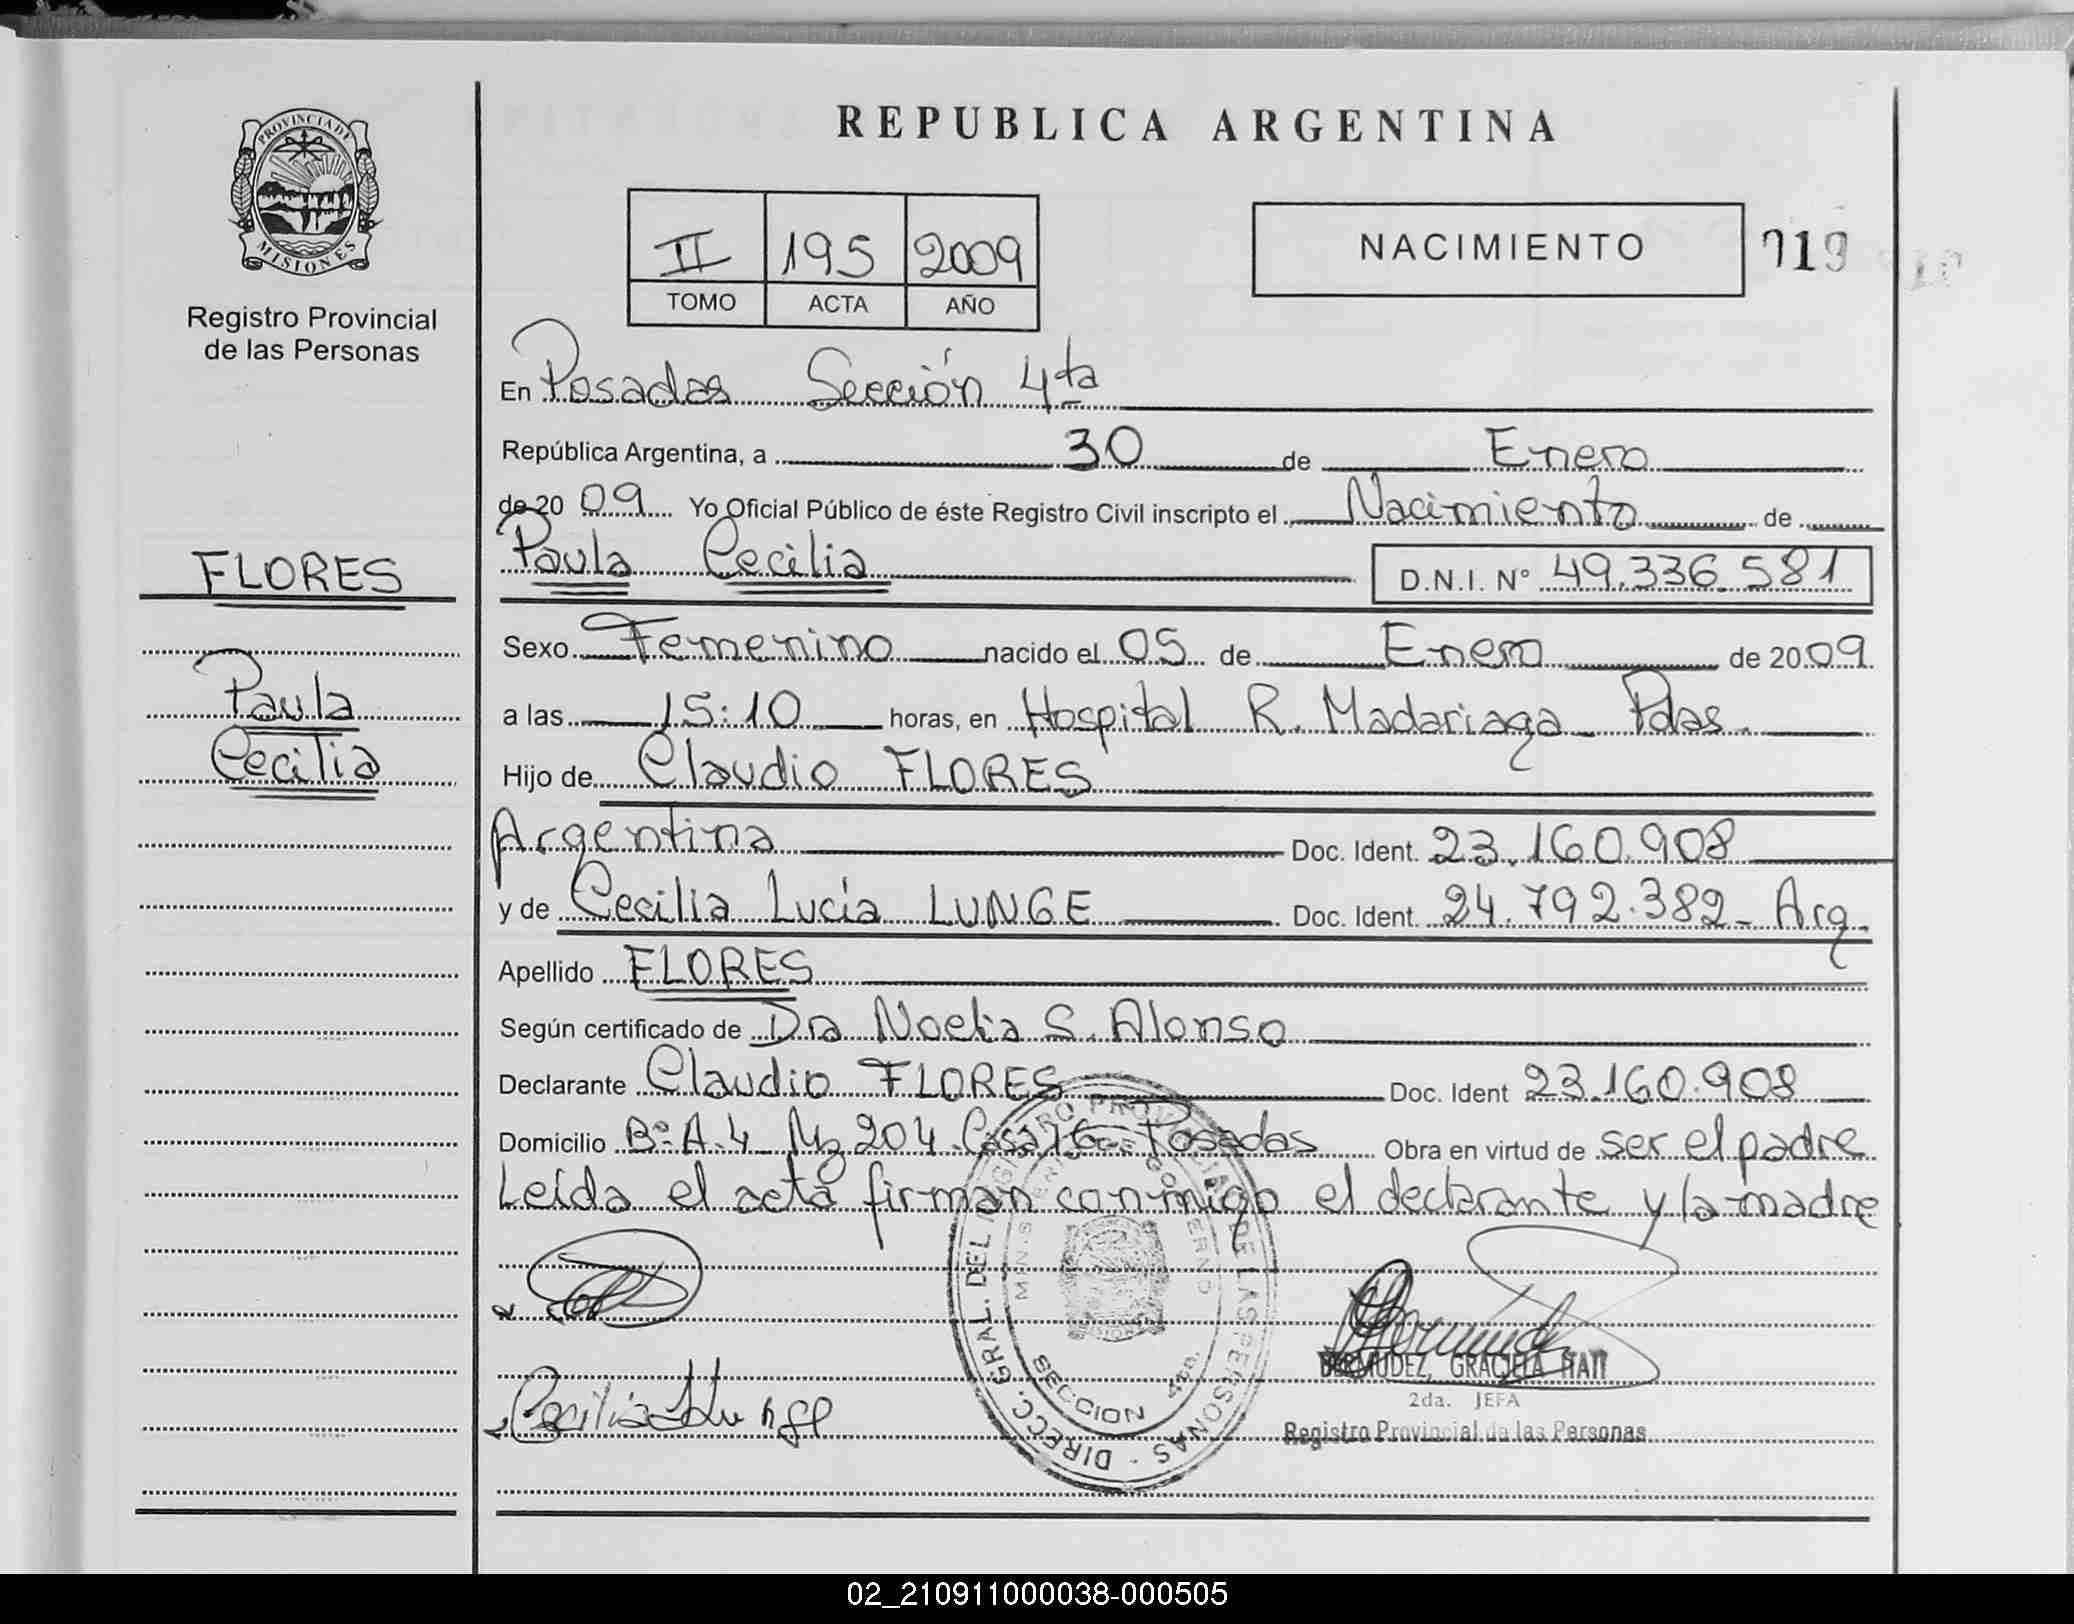 PROVINCIA DE
MISIONES
Registro Provincial
de las Personas
REPUBLICA ARGENTINA
II 195 2009
TOMO ACTA AÑO
NACIMIENTO 019
En Posadas Sección 4ta
República Argentina, a 30 de Enero
de 20 09 Yo Oficial Público de éste Registro Civil inscripto el Nacimiento de
Paula Cecilia D.N.I. N° 49.336.581
FLORES
Paula
Cecilia
Sexo Femenino nacido el 05 de Enero de 20 09
a las 15:10 horas, en Hospital R. Madariaga - Pdas.
Hijo de Claudio FLORES
Argentina Doc. Ident. 23.160.908
y de Cecilia Lucía LUNGE Doc. Ident. 24.792.382 - Arg.
Apellido FLORES
Según certificado de Dra Noelia S. Alonso
Declarante Claudio FLORES Doc. Ident 23.160.908
Domicilio B° A-4 Mz 204 Casa 16 - Posadas Obra en virtud de ser el padre
Leída el acta firman conmigo el declarante y la madre
DIRECC. GRAL. DEL REGISTRO PROVINCIAL DE LAS PERSONAS -
MINISTERIO DE GOBIERNO
MISIONES
SECCION 4ta.
Cecilia Lunge
BERMUDEZ, GRACIELA ITATI
2da. JEFA
Registro Provincial de las Personas
02_210911000038-000505